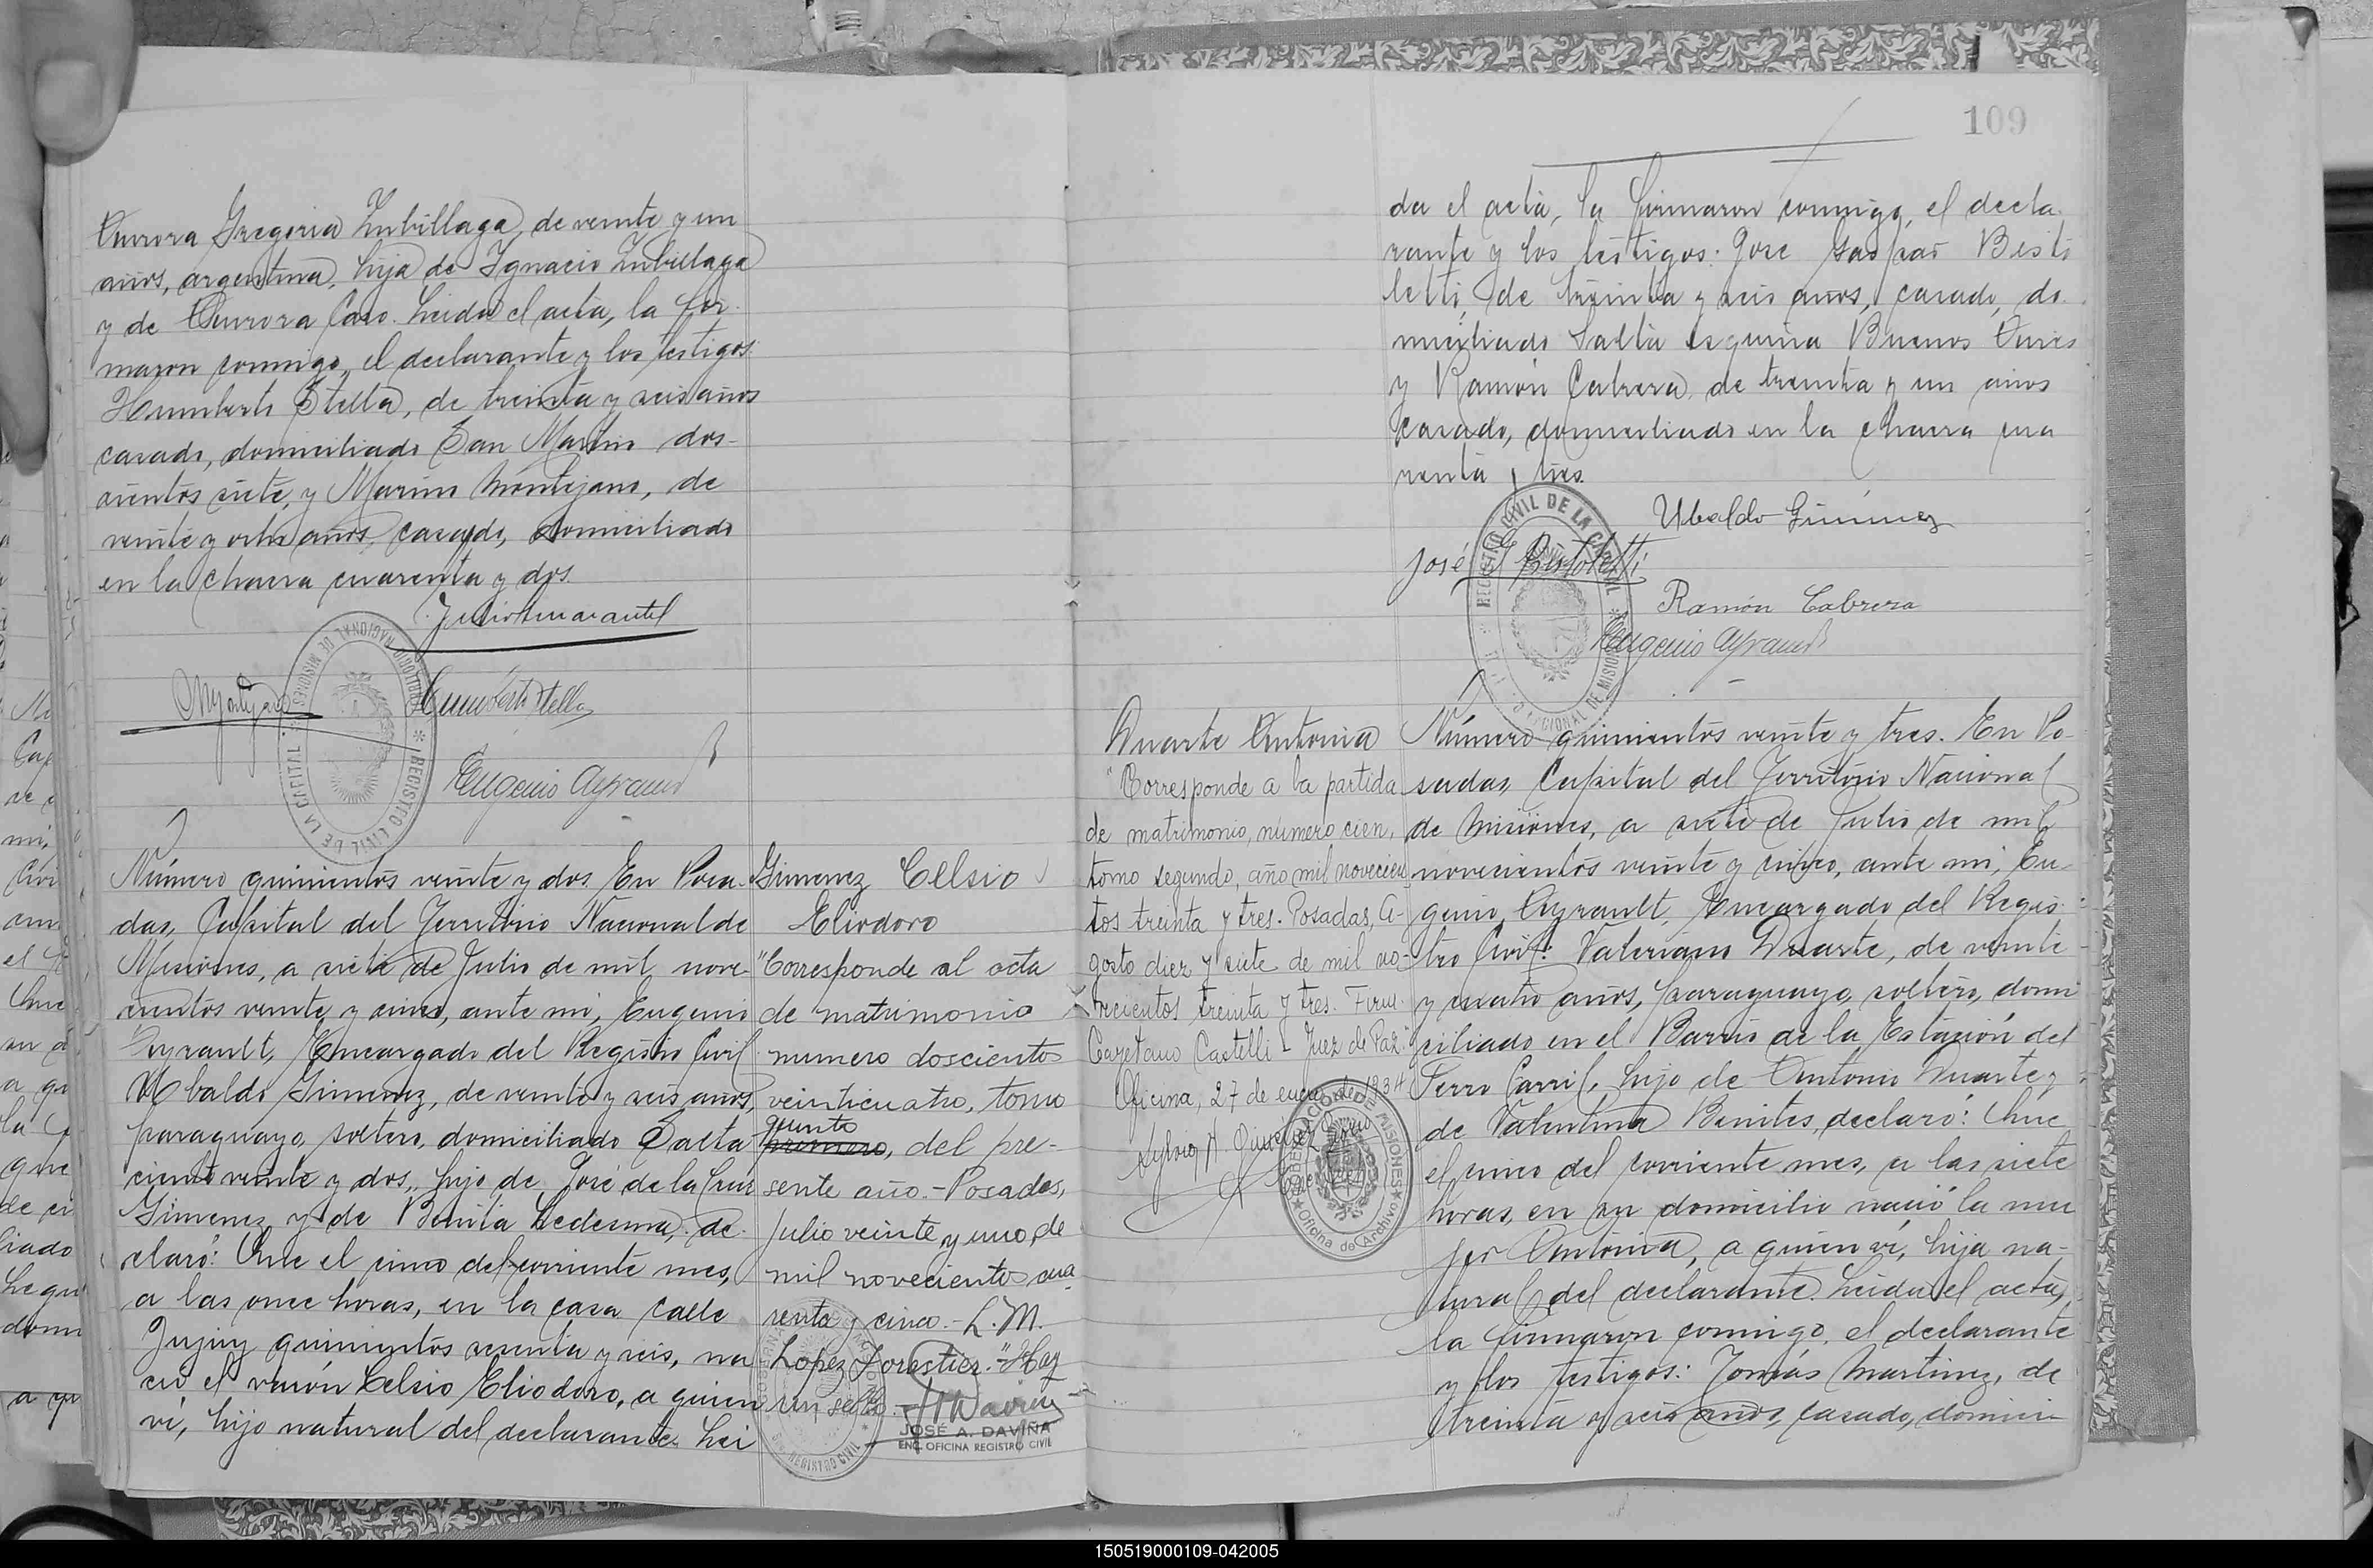 Aurora Gregoria Zubillaga, de veinte y un
años, argentina, hija de Ignacio Zubillaga
y de Aurora Caso. Leida el acta, la fir-
maron conmigo, el declarante y los testigos
Humberto Stella, de treinta y seis años
casado, domiciliado San Martin dos-
cientos siete, y Marino Montejano, de
veinte y ocho años, casado, domiciliado
en la chacra cuarenta y dos.
Humberto Stella
Eugenio Ayrault
REGISTRO CIVIL DE LA CAPITAL
Número quinientos veinte y dos. En Posa-
das, Capital del Territorio Nacional de
Misiones, a siete de Julio de mil nove-
cientos veinte y cinco, ante mi, Eugenio
Ayrault, Encargado del Registro Civil
Ubaldo Gimenez, de veinte y seis años,
paraguayo, soltero, domiciliado Salta
ciento veinte y dos, hijo de José de la Cruz
Gimenez y de Benita Ledesma, de-
claró: Que el cinco del corriente mes,
a las once horas, en la casa calle
Jujuy quinientos sesenta y seis, na-
ció el varón Celsio Eliodoro, a quien
ví, hijo natural del declarante. Lei
Gimenez Celsio
Eliodoro
"Corresponde al acta
de matrimonio
numero doscientos
veinticuatro, tomo
quinto
primero, del pre-
sente año.- Posadas,
Julio veinte y uno, de
mil novecientos cua
renta y cinco.- L. M.
Lopez Forastier." Hay
un sello.-
JOSÉ A. DAVIÑA
ENC. OFICINA REGISTRO CIVIL
109
da el acta, la firmaron conmigo, el decla
rante y los testigos: José Gaspar Bisto
letti, de treinta y seis años, casado, do
miciliado Salta esquina Buenos Aires
y Ramón Cabrera, de treinta y un años
casado, domiciliado en la chacra cua
renta y tres.
Ubaldo Gimenez
José G Bistoletti
Ramón Cabrera
Eugenio Ayrault
REGISTRO CIVIL DE LA CAPITAL
Duarte Antonia
"Corresponde a la partida
de matrimonio, número cien,
tomo segundo, año mil novecien
tos treinta y tres. Posadas, A-
gosto diez y siete de mil no-
vecientos treinta y tres. Firm.
Cayetano Castelli - Juez de Paz."
Oficina, 27 de enero de 1934
GOBERNACION DE MISIONES
Oficina de Archivo
Número quinientos veinte y tres. En Po-
sadas, Capital del Territorio Nacional
de Misiones, a siete de Julio de mil
novecientos veinte y cinco, ante mi, Eu-
genio Ayrault, Encargado del Regis-
tro Civil: Valeriano Duarte, de veinte
y cuatro años, paraguayo, soltero, domi
ciliado en el Barrio de la Estación del
Ferro Carril, hijo de Antonio Duarte y
de Valentina Benites, declaró: Que
el cinco del corriente mes, a las siete
horas, en su domicilio nació la mu
jer Antonia, a quien ví, hija na-
tural del declarante. Leida el acta,
la firmaron conmigo, el declarante
y los testigos: Tomás Martinez, de
treinta y seis años, casado, domici
150519000109-042005